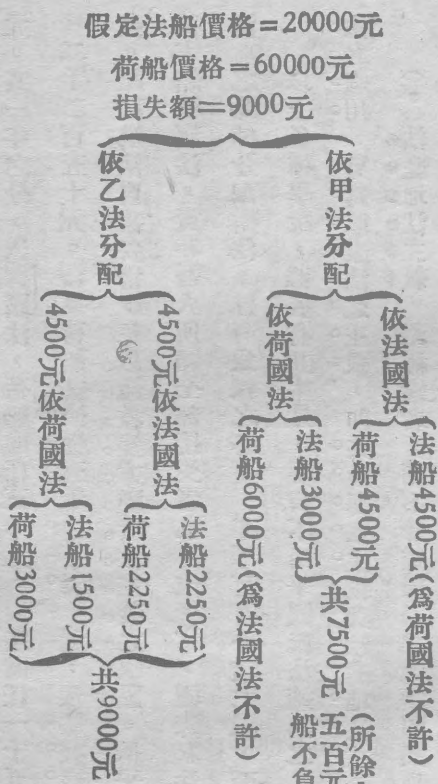 假定法船價格=20000元
荷船價格=60000元
損失額=9000元
依甲法分配
依法國法
法船4500元(爲荷國法不許)
荷船4500元
依荷國法
法船3000元
荷船6000元(爲法國法不許)
共7500元
(所餘
五百元
船不負
依乙法分配
4500元依法國法
法船2250元
荷船2250元
4500元依荷國法
法船1500元
荷船3000元
共9000元